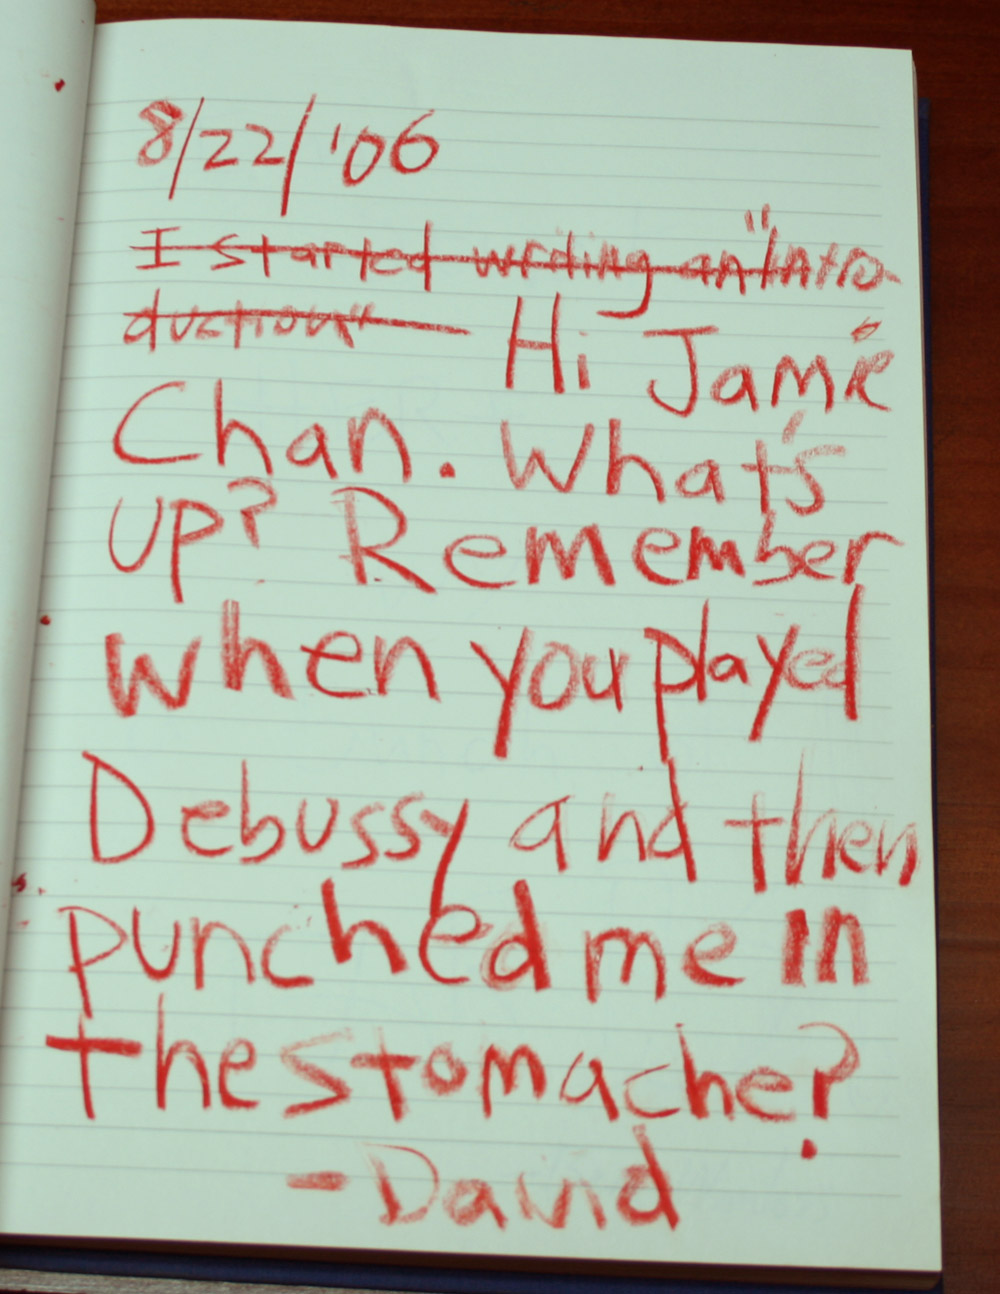 8/22/'06
I started writing an "Intro-
duction" Hi Jamie
Chan. What's
up? Remember
when you played
Debussy and then
punched me in
the stomache?
- David